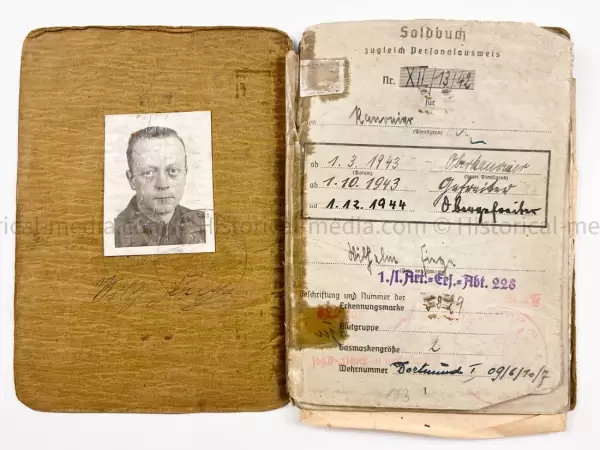 Soldbuch
zugleich Personalausweis
Nr. XII/13/42
für
den Kanonier
(Dienstgrad)
ab 1.3.1943 Oberkanonier
(Datum) (neuer Dienstgrad)
ab 1.10.1943 Gefreiter
ab 1.12.1944 Obergefreiter
Wilhelm
1./l.Art.=Ers.=Abt. 228
Beschriftung und Nummer der
Erkennungsmarke
Blutgruppe
Gasmaskengröße 2
Wehrnummer Dortmund I 09/6/10/7
1
Historical-media.com © Historical-media.com © Historical-me